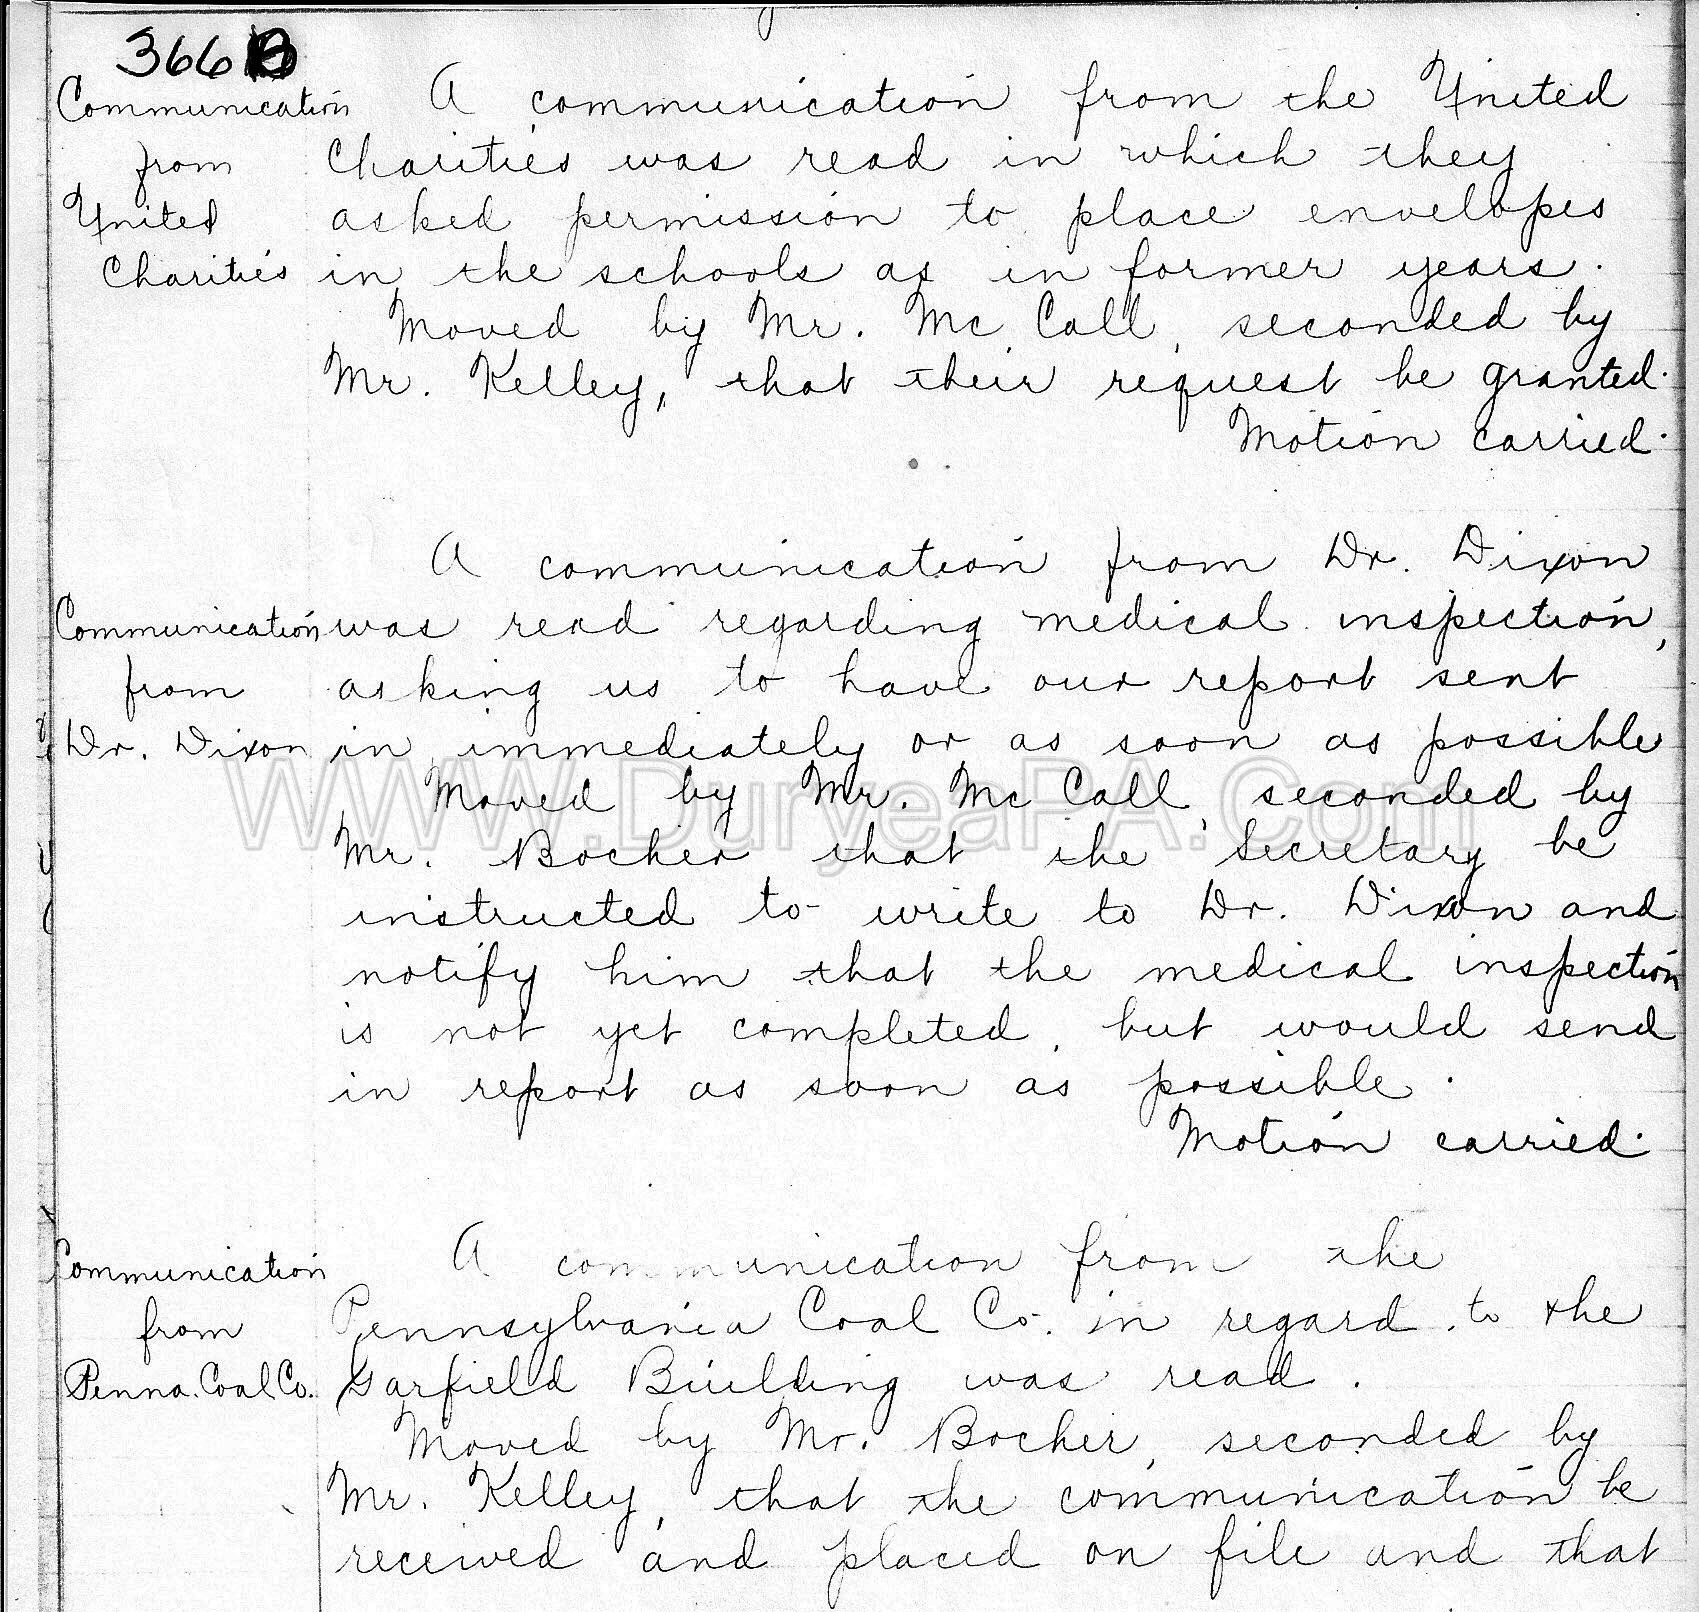 366B
Communication
from
United
Charities
A communication from the United
Charities was read in which they
asked permission to place envelopes
in the schools as in former years.
Moved by Mr. Mc Call, seconded by
Mr. Kelley, that their request be granted.
Motion carried.
Communication
from
Dr. Dixon
A communication from Dr. Dixon
was read regarding medical inspection,
asking us to have our report sent
in immediately or as soon as possible
Moved by Mr. Mc Call, seconded by
Mr. Bocher that the Secretary be
instructed to write to Dr. Dixon and
notify him that the medical inspection
is not yet completed, but would send
in report as soon as possible.
Motion carried.
Communication
from
Penna. Coal Co.
A communication from the
Pennsylvania Coal Co. in regard to the
Garfield Building was read.
Moved by Mr. Bocher, seconded by
Mr. Kelley, that the communication be
received and placed on file and that
WWW.DuryeaPA.Com